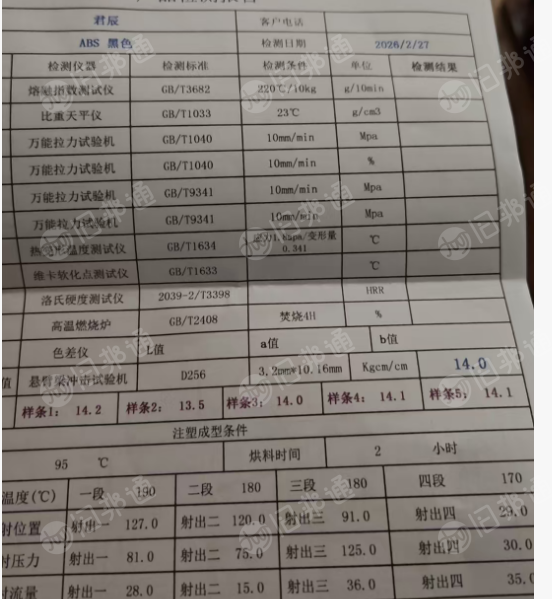 君辰 客户电话
ABS 黑色 检测日期 2026/2/27
检测仪器 检测标准 检测条件 单位 检测结果
熔融指数测试仪 GB/T3682 220℃/10kg g/10min
比重天平仪 GB/T1033 23℃ g/cm3
万能拉力试验机 GB/T1040 10mm/min Mpa
万能拉力试验机 GB/T1040 10mm/min %
万能拉力试验机 GB/T9341 10mm/min Mpa
万能拉力试验机 GB/T9341 10mm/min Mpa
热变形温度测试仪 GB/T1634 /变形量 0.341 ℃
维卡软化点测试仪 GB/T1633 ℃
洛氏硬度测试仪 2039-2/T3398 HRR
高温燃烧炉 GB/T2408 焚烧4H %
色差仪 L值 a值 b值
值 悬臂梁冲击试验机 D256 3.2mm*10.16mm Kgcm/cm 14.0
样条1: 14.2 样条2: 13.5 样条3: 14.0 样条4: 14.1 样条5: 14.1
注塑成型条件
95 ℃ 烘料时间 2 小时
温度(℃) 一段 190 二段 180 三段 180 四段 170
射位置 射出一 127.0 射出二 120.0 射出三 91.0 射出四 29.0
射压力 射出一 81.0 射出二 75.0 射出三 125.0 射出四 30.0
射流量 射出一 28.0 射出二 15.0 射出三 36.0 射出四 35.0
旧邦通